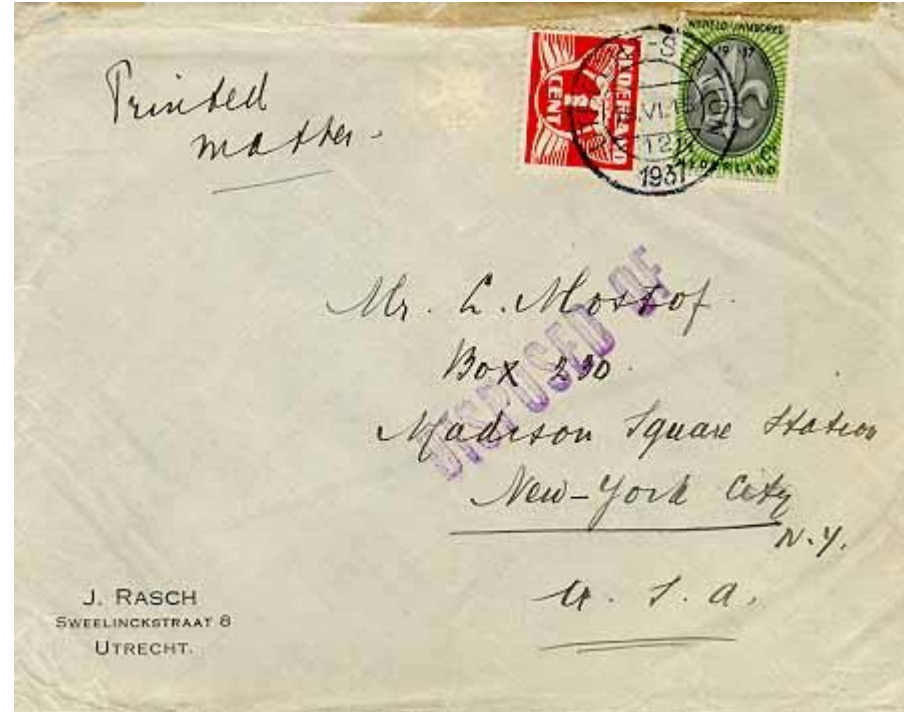 Printed
matter
NEDERLAND
CENT
WERELD JAMBOREE
1937
NEDERLAND
VI.
12
1937
Mr. L. Mostof.
Box 230.
DISPOSED OF
Madison Square Station
New-York City
N.Y.
U.S.A.
J. RASCH
SWEELINCKSTRAAT 8
UTRECHT.